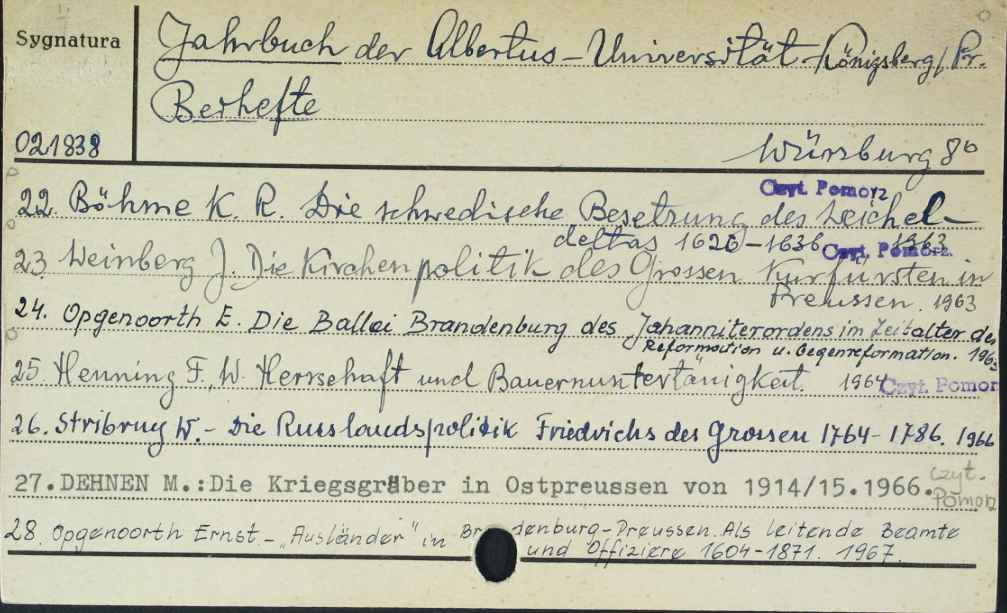 Sygnatura
Jahrbuch der Albertus-Universität-Königsberg/Pr.
Beihefte
021838
Würzburg 8°
Czyt. Pomorz
22. Böhme K. R. Die schwedische Besetzung des Weichel-
deltas 1626-1636 1963
Czyt. Pomorz.
23 Weinberg J. Die Kirchenpolitik des Grossen Kurfürsten in
Preussen. 1963
24. Opgenoorth E. Die Ballei Brandenburg des Johanniterordens im Zeitalter der
Reformation u. Gegenreformation. 1963
25. Henning F. W. Herrschaft und Bauernuntertänigkeit. 1964
Czyt. Pomor
26. Stribrny W.- Die Russlandspolitik Friedrichs des Grossen 1764-1786. 1966
27.DEHNEN M.:Die Kriegsgräber in Ostpreussen von 1914/15.1966.
czyt.
Pomorz
28. Opgenoorth Ernst.- „Ausländer" in Br denburg-Preussen. Als leitende Beamte
und Offiziere 1604-1871. 1967.